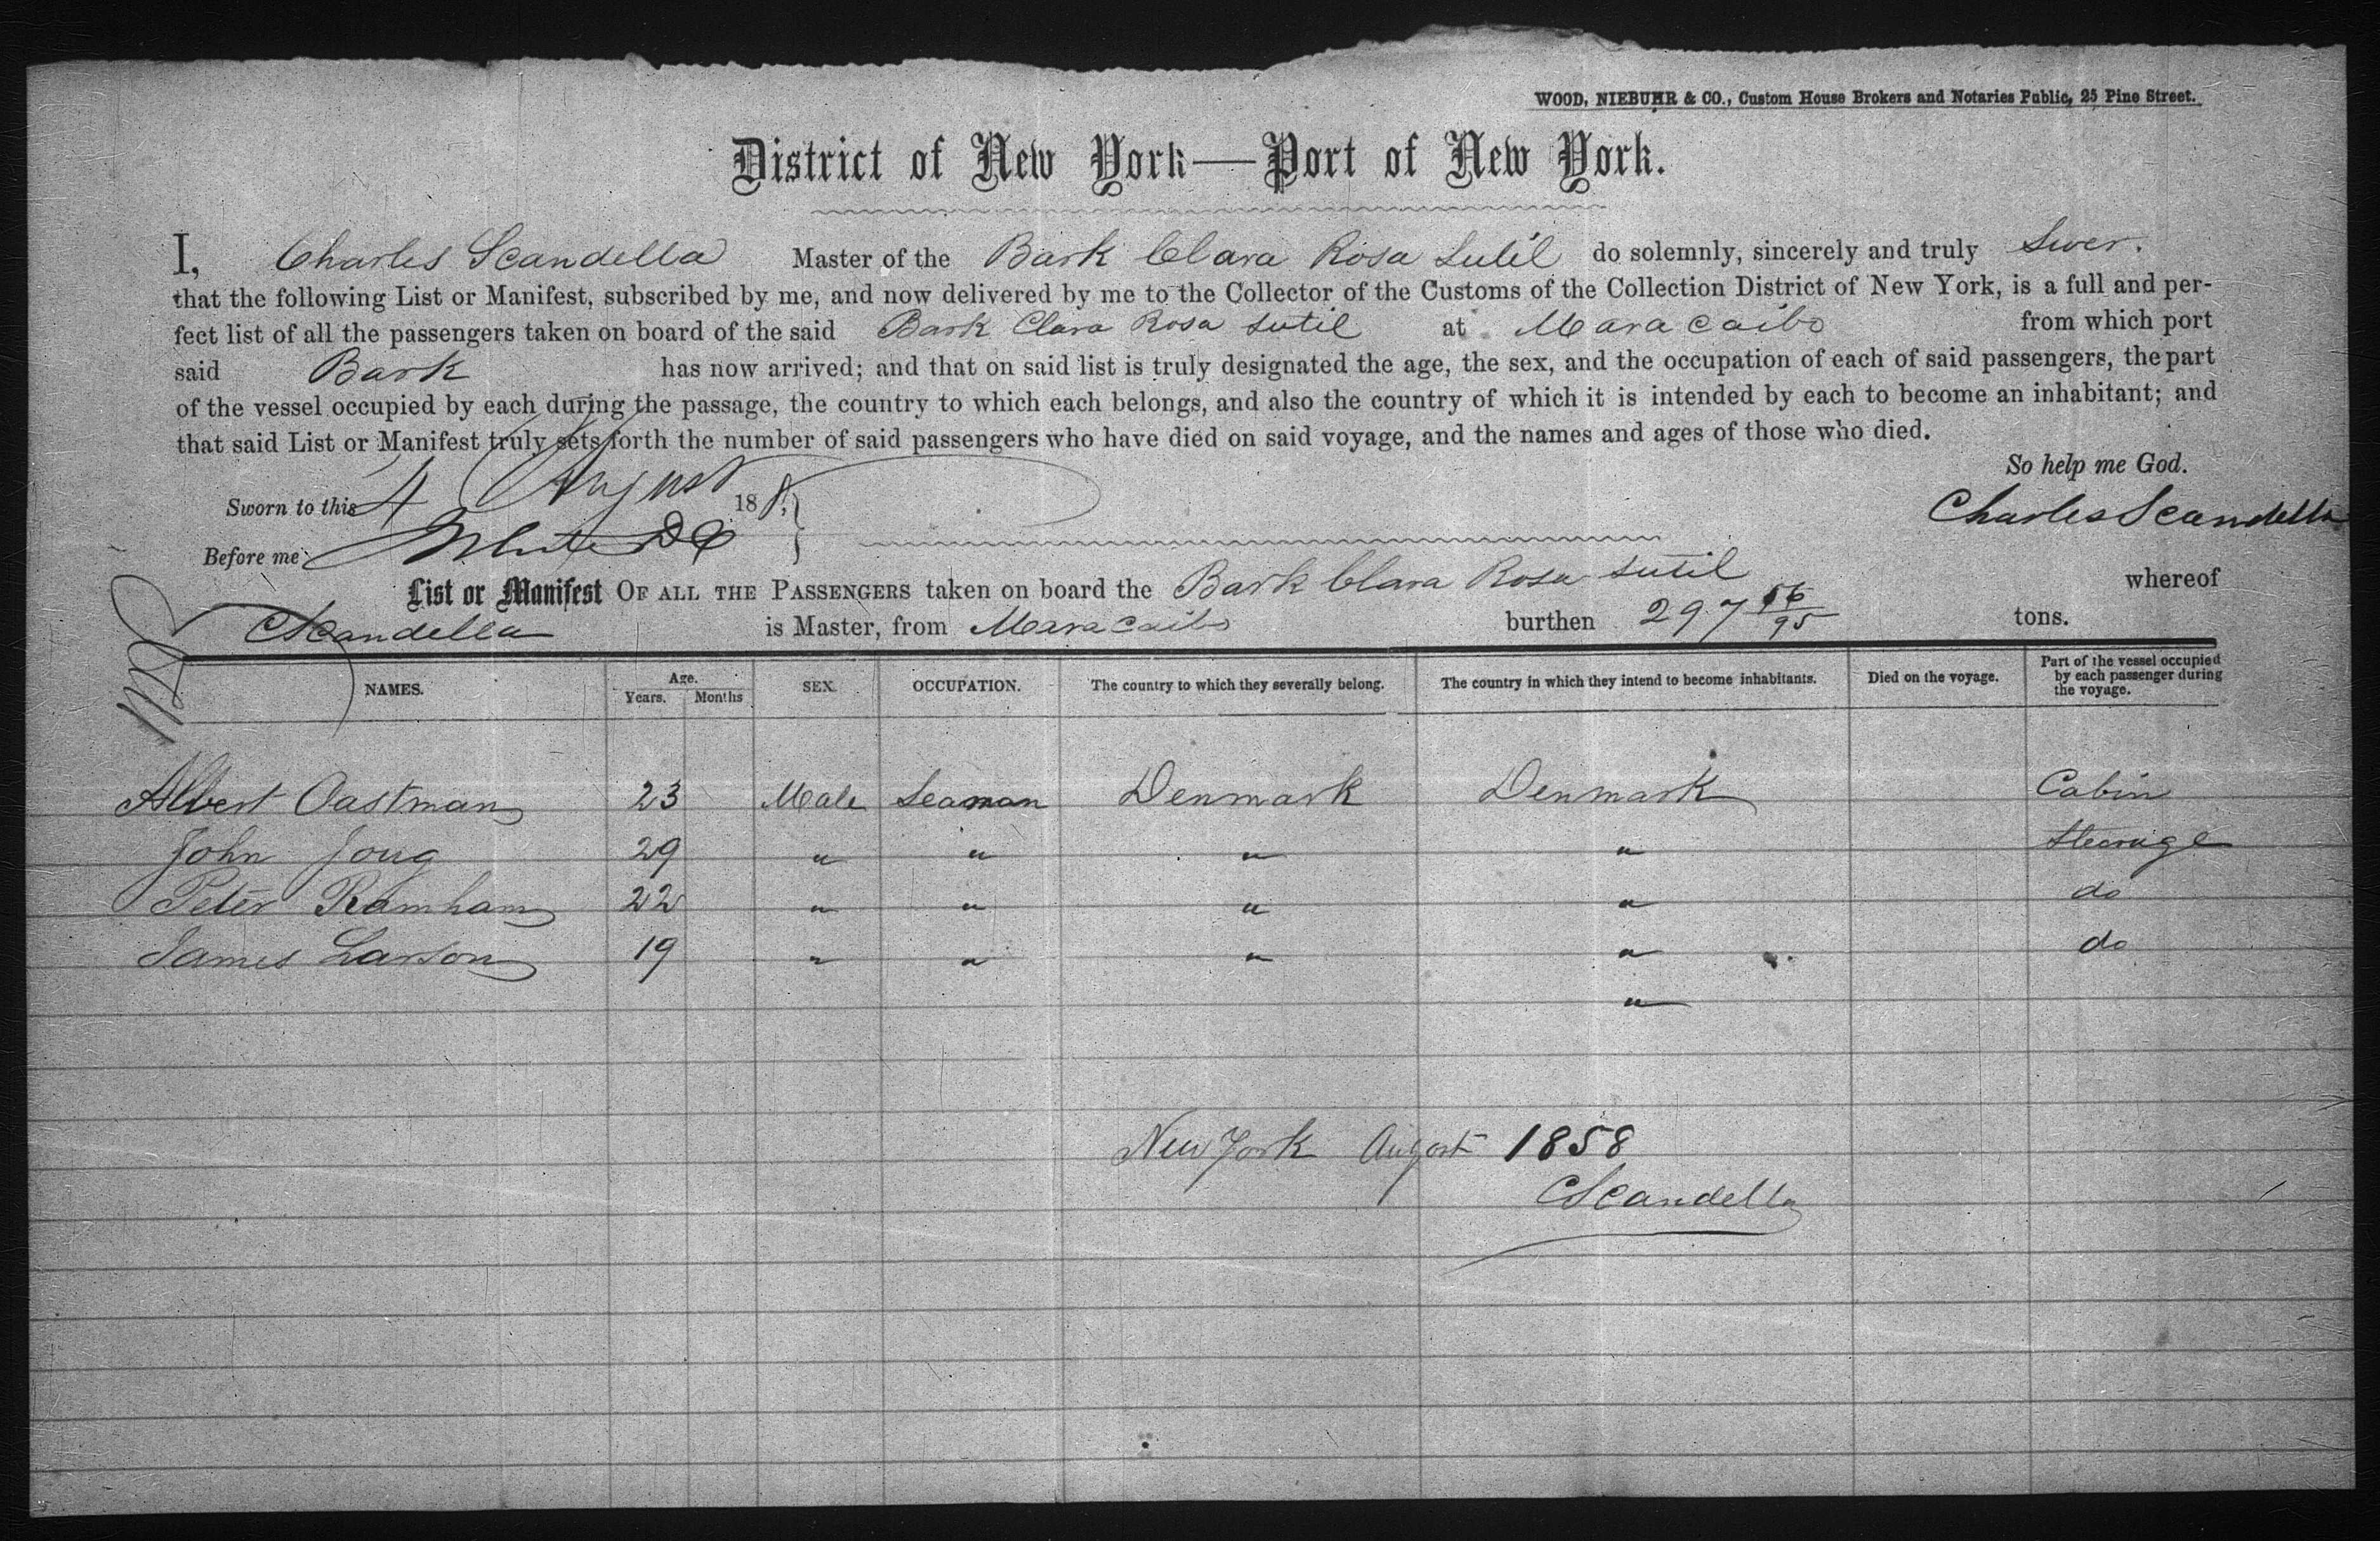 WOOD, NIEBUHR & CO., Custom House Brokers and Notaries Public, 25 Pine Street.
District of New York—Port of New York.
I, Charles Scandella Master of the Bark Clara Rosa Sutil do solemnly, sincerely and truly Swer.
that the following List or Manifest, subscribed by me, and now delivered by me to the Collector of the Customs of the Collection District of New York, is a full and per-
fect list of all the passengers taken on board of the said Bark Clara Rosa Sutil at Maracaibo from which port
said Bark has now arrived; and that on said list is truly designated the age, the sex, and the occupation of each of said passengers, the part
of the vessel occupied by each during the passage, the country to which each belongs, and also the country of which it is intended by each to become an inhabitant; and
that said List or Manifest truly sets forth the number of said passengers who have died on said voyage, and the names and ages of those who died.
So help me God.
Sworn to this 4 August 18
Charles Scandella
Before me
List or Manifest OF ALL THE PASSENGERS taken on board the Bark Clara Rosa Sutil whereof
CScandella is Master, from Maracaibo burthen 297 56/95 tons.
NAMES. Age. Years. Months SEX. OCCUPATION. The country to which they severally belong. The country in which they intend to become inhabitants. Died on the voyage. Part of the vessel occupied by each passenger during the voyage.
Albert Oastman 23 Male Seaman Denmark Denmark Cabin
John Joug 29 " " " " Steerage
Peter Ramham 22 " " " " do
James Larson 19 " " " " do
"
New York August 1858
CScandella